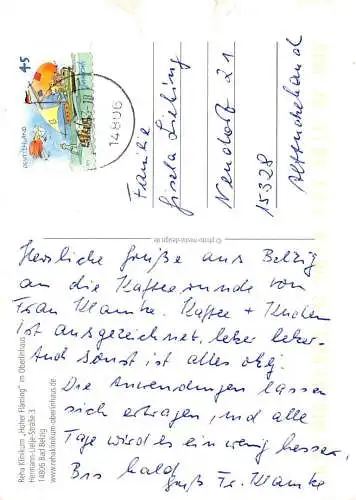 45
DEUTSCHLAND
14806
Familie
Gisela Liebing
Neudorf 21
15328
Altfriedland
© photo-media-design.de
Herzliche Grüße aus Belzig
an die Kaffeerunde von
Frau Mamke. Kaffee + Kuchen
ist ausgezeichnet, leker leker.
Auch sonst ist alles okej.
Die Anwendungen lassen
sich ertragen, und alle
Tage wird es ein wenig besser.
Bis bald
Gruß Fr. Mamke
Reha Klinikum „Hoher Fläming“ im Oberlinhaus
Hermann-Lielje-Straße 3
14806 Bad Belzig
www.rehaklinikum-oberlinhaus.de